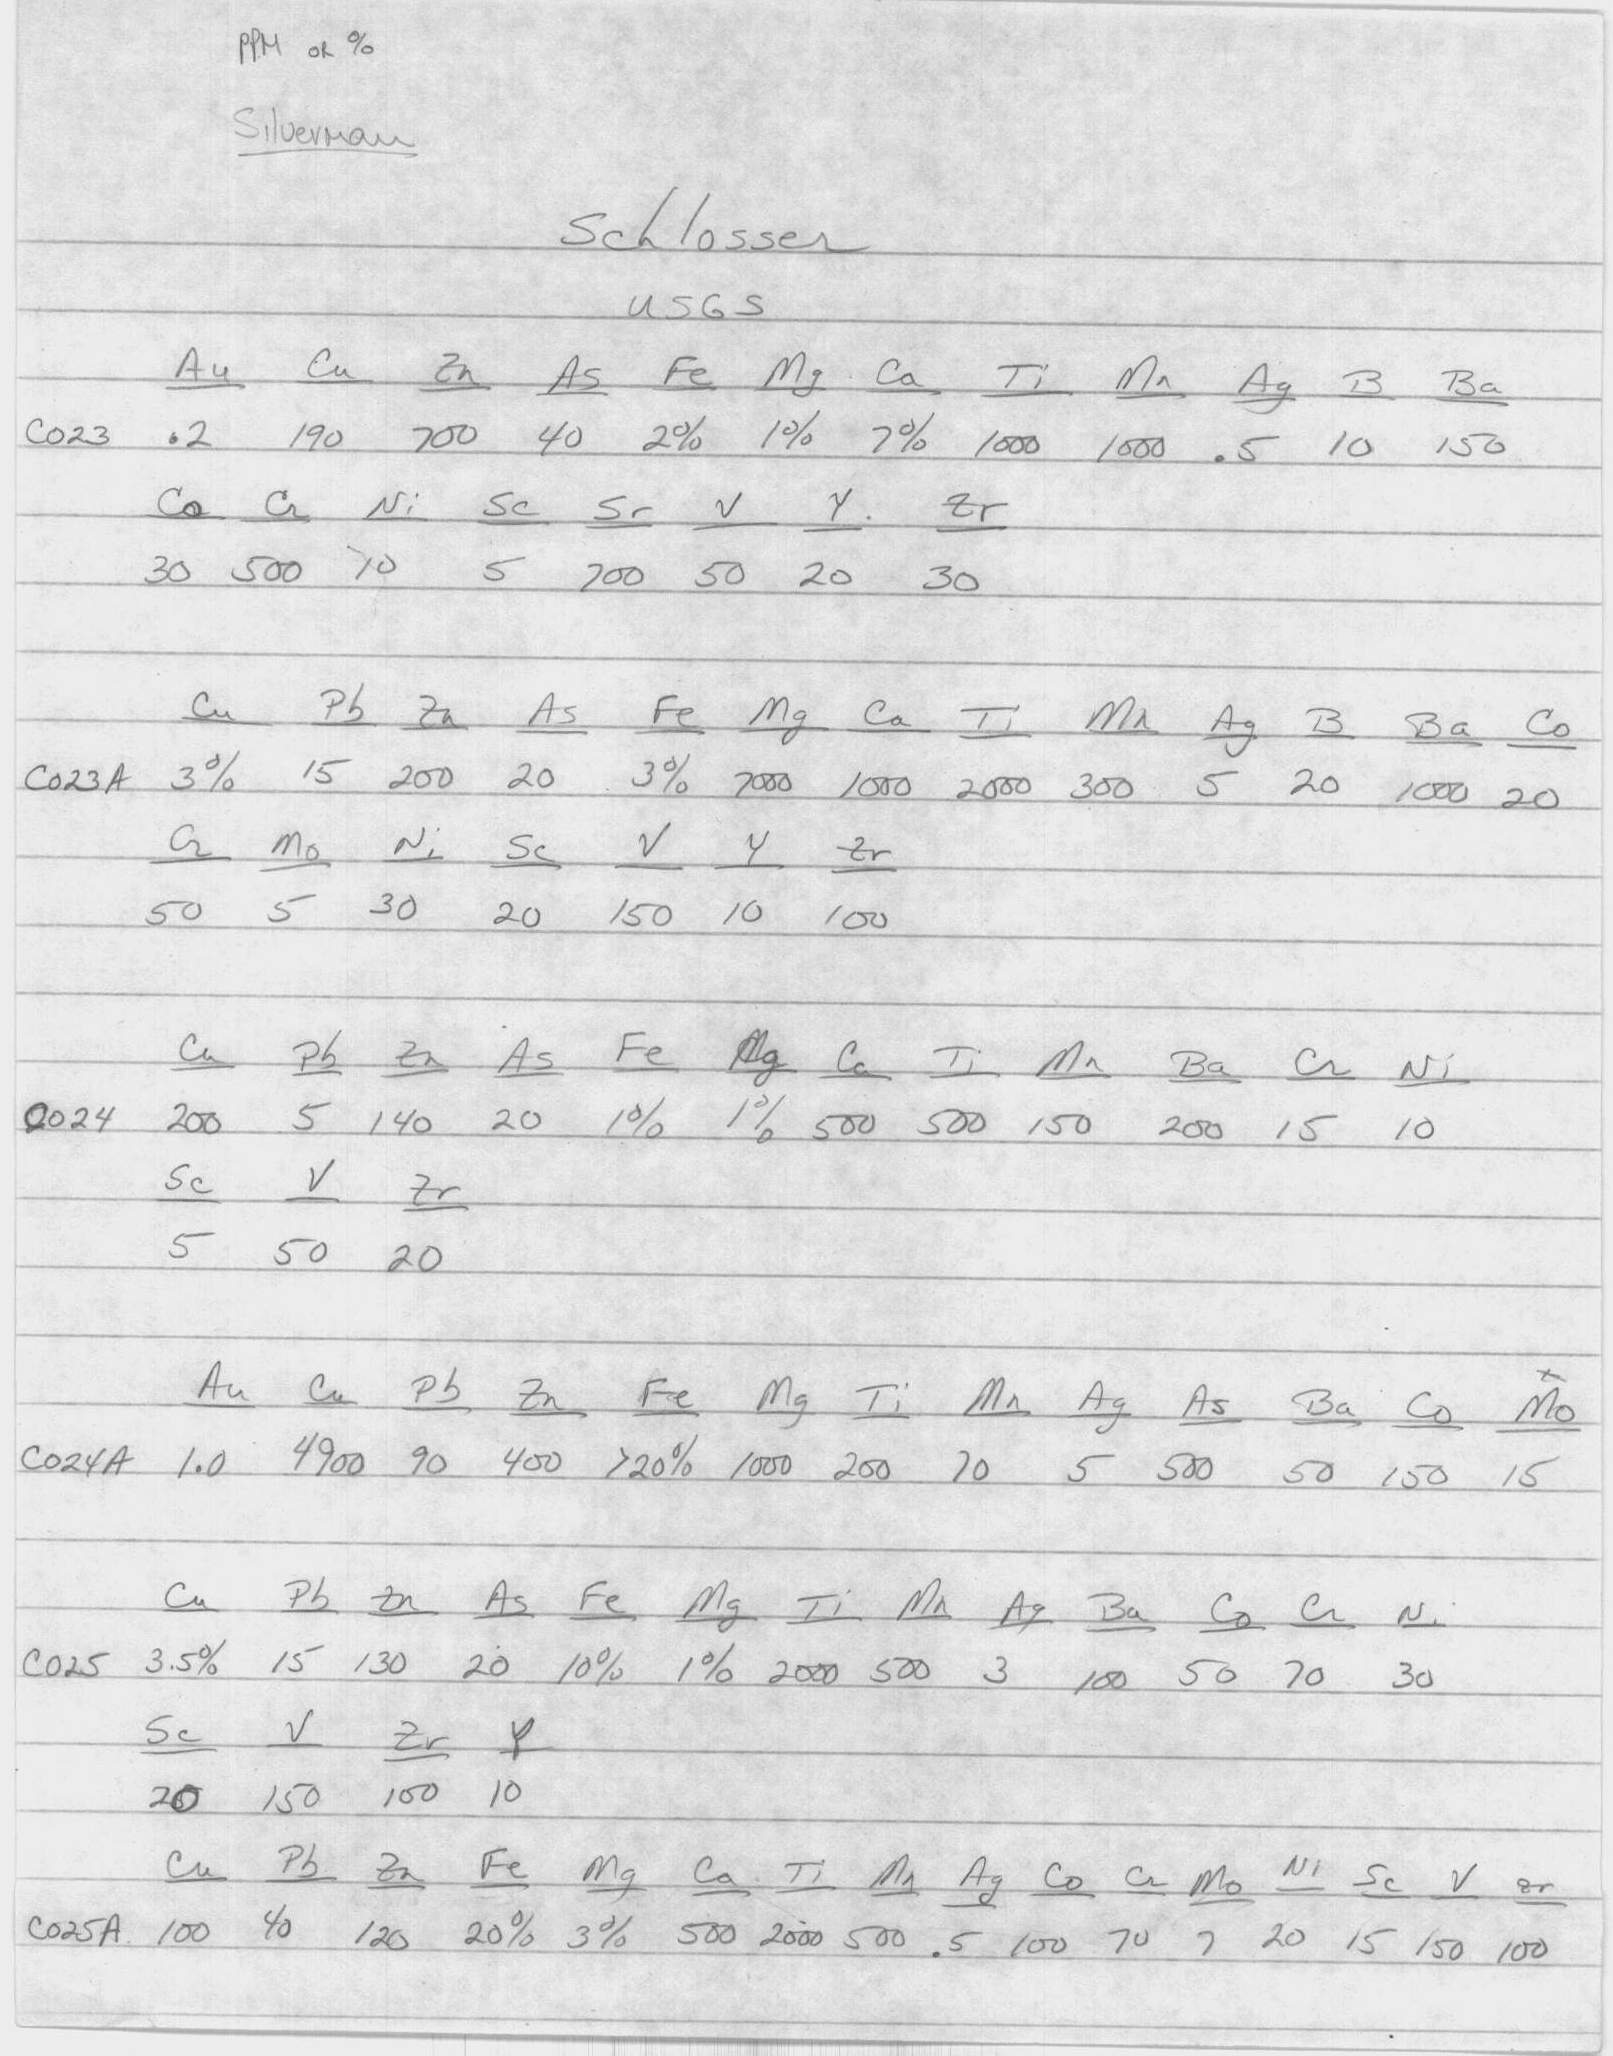 PPM OR %
Silverman
Schlosser
USGS
Au Cu Zn As Fe Mg Ca Ti Mn Ag B Ba
C023 .2 190 700 40 2% 1% 7% 1000 1000 .5 10 150
Co Cr Ni Sc Sr V Y Zr
30 500 70 5 700 50 20 30
Cu Pb Zn As Fe Mg Ca Ti Mn Ag B Ba Co
C023A 3% 15 200 20 3% 7000 1000 2000 300 5 20 1000 20
Cr Mo Ni Sc V Y Zr
50 5 30 20 150 10 100
Cu Pb Zn As Fe Mg Ca Ti Mn Ba Cr Ni
C024 200 5 140 20 1% 1% 500 500 150 200 15 10
Sc V Zr
5 50 20
Au Cu Pb Zn Fe Mg Ti Mn Ag As Ba Co Mo
C024A 1.0 4900 90 400 >20% 1000 200 70 5 500 50 150 15
Cu Pb Zn As Fe Mg Ti Mn Ag Ba Co Cr Ni
C025 3.5% 15 130 20 10% 1% 2000 500 3 100 50 70 30
Sc V Zr Y
20 150 100 10
Cu Pb Zn Fe Mg Ca Ti Mn Ag Co Cr Mo Ni Sc V Zr
C025A 100 40 120 20% 3% 500 2000 500 .5 100 70 7 20 15 150 100